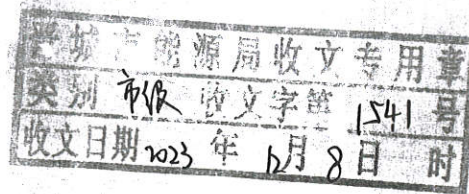 晋城市能源局收文专用章
类别 市级 收文字第 1541 号
收文日期 2023 年 12月 8日 时